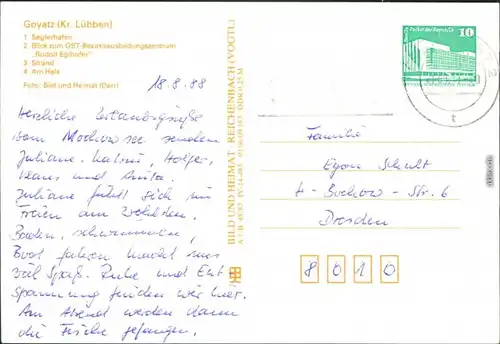 Goyatz (Kr. Lübben)
1 Seglerhafen
2 Blick zum GST-Bezirksausbildungszentrum
"Rudolf Egelhofer"
3 Strand
4 Am Hals
Foto: Bild und Heimat (Darr)
18.8.88
Herzliche Urlaubsgrüße
vom Mochowsee senden
Juliane, Katrin, Holger,
Klaus und
Juliane fühlt sich im
Freien am wohlsten.
Baden, schwimmen,
Boot fahren macht uns
viel Spaß. Ruhe und Ent
spannung finden wir hier.
Am Abend werden dann
die Fische gefangen.
BILD UND HEIMAT REICHENBACH (VOGTL)
10
Familie
Egon Schult
Str. 6
Dresden
8010